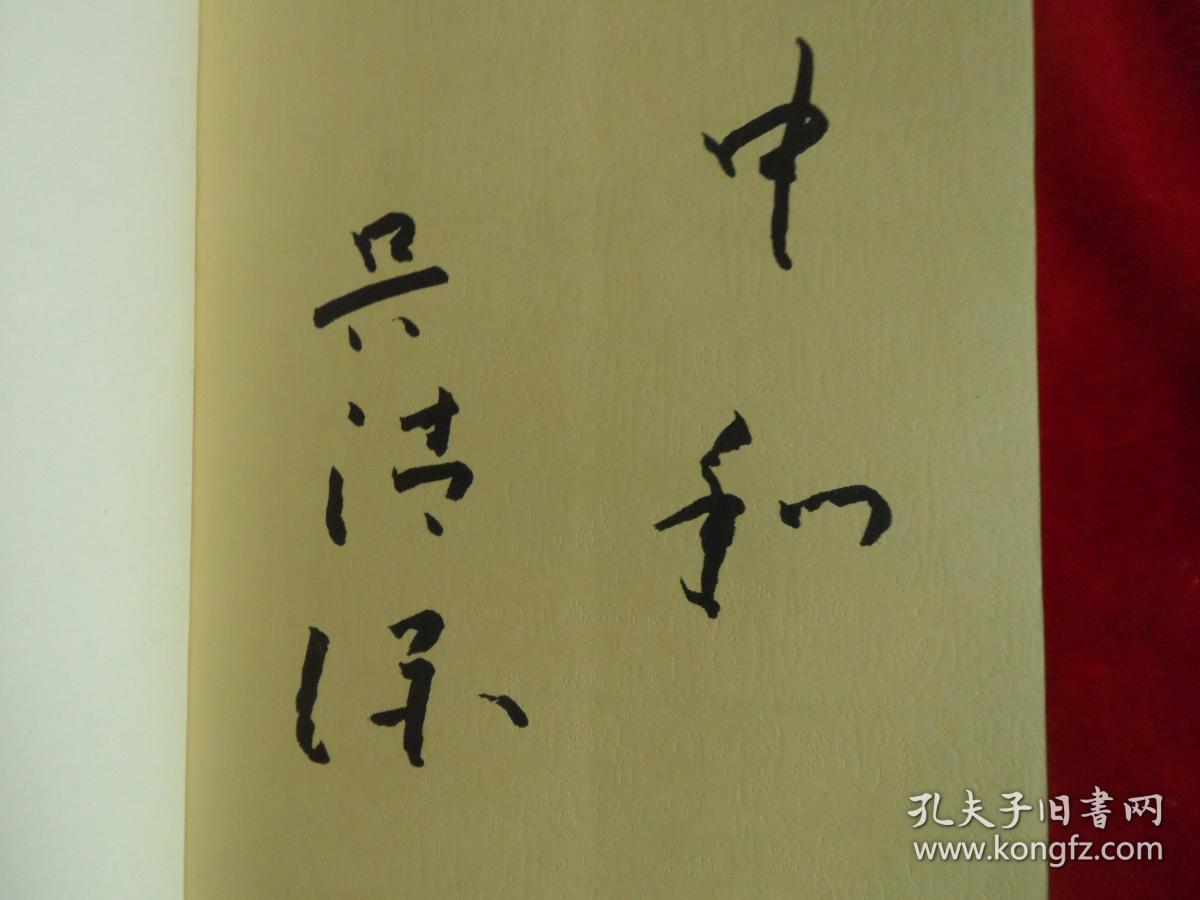 中和
吳清源
孔夫子旧書网
www.kongfz.com